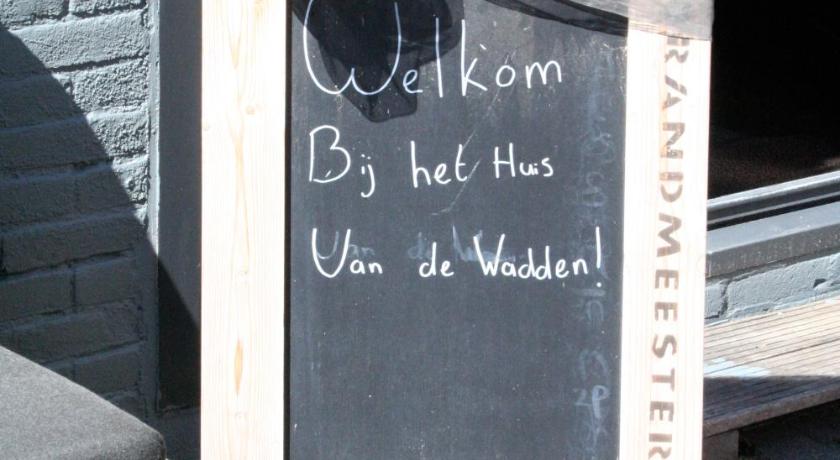 Welkom
Bij het Huis
Van de Wadden!
RANDMEESTER